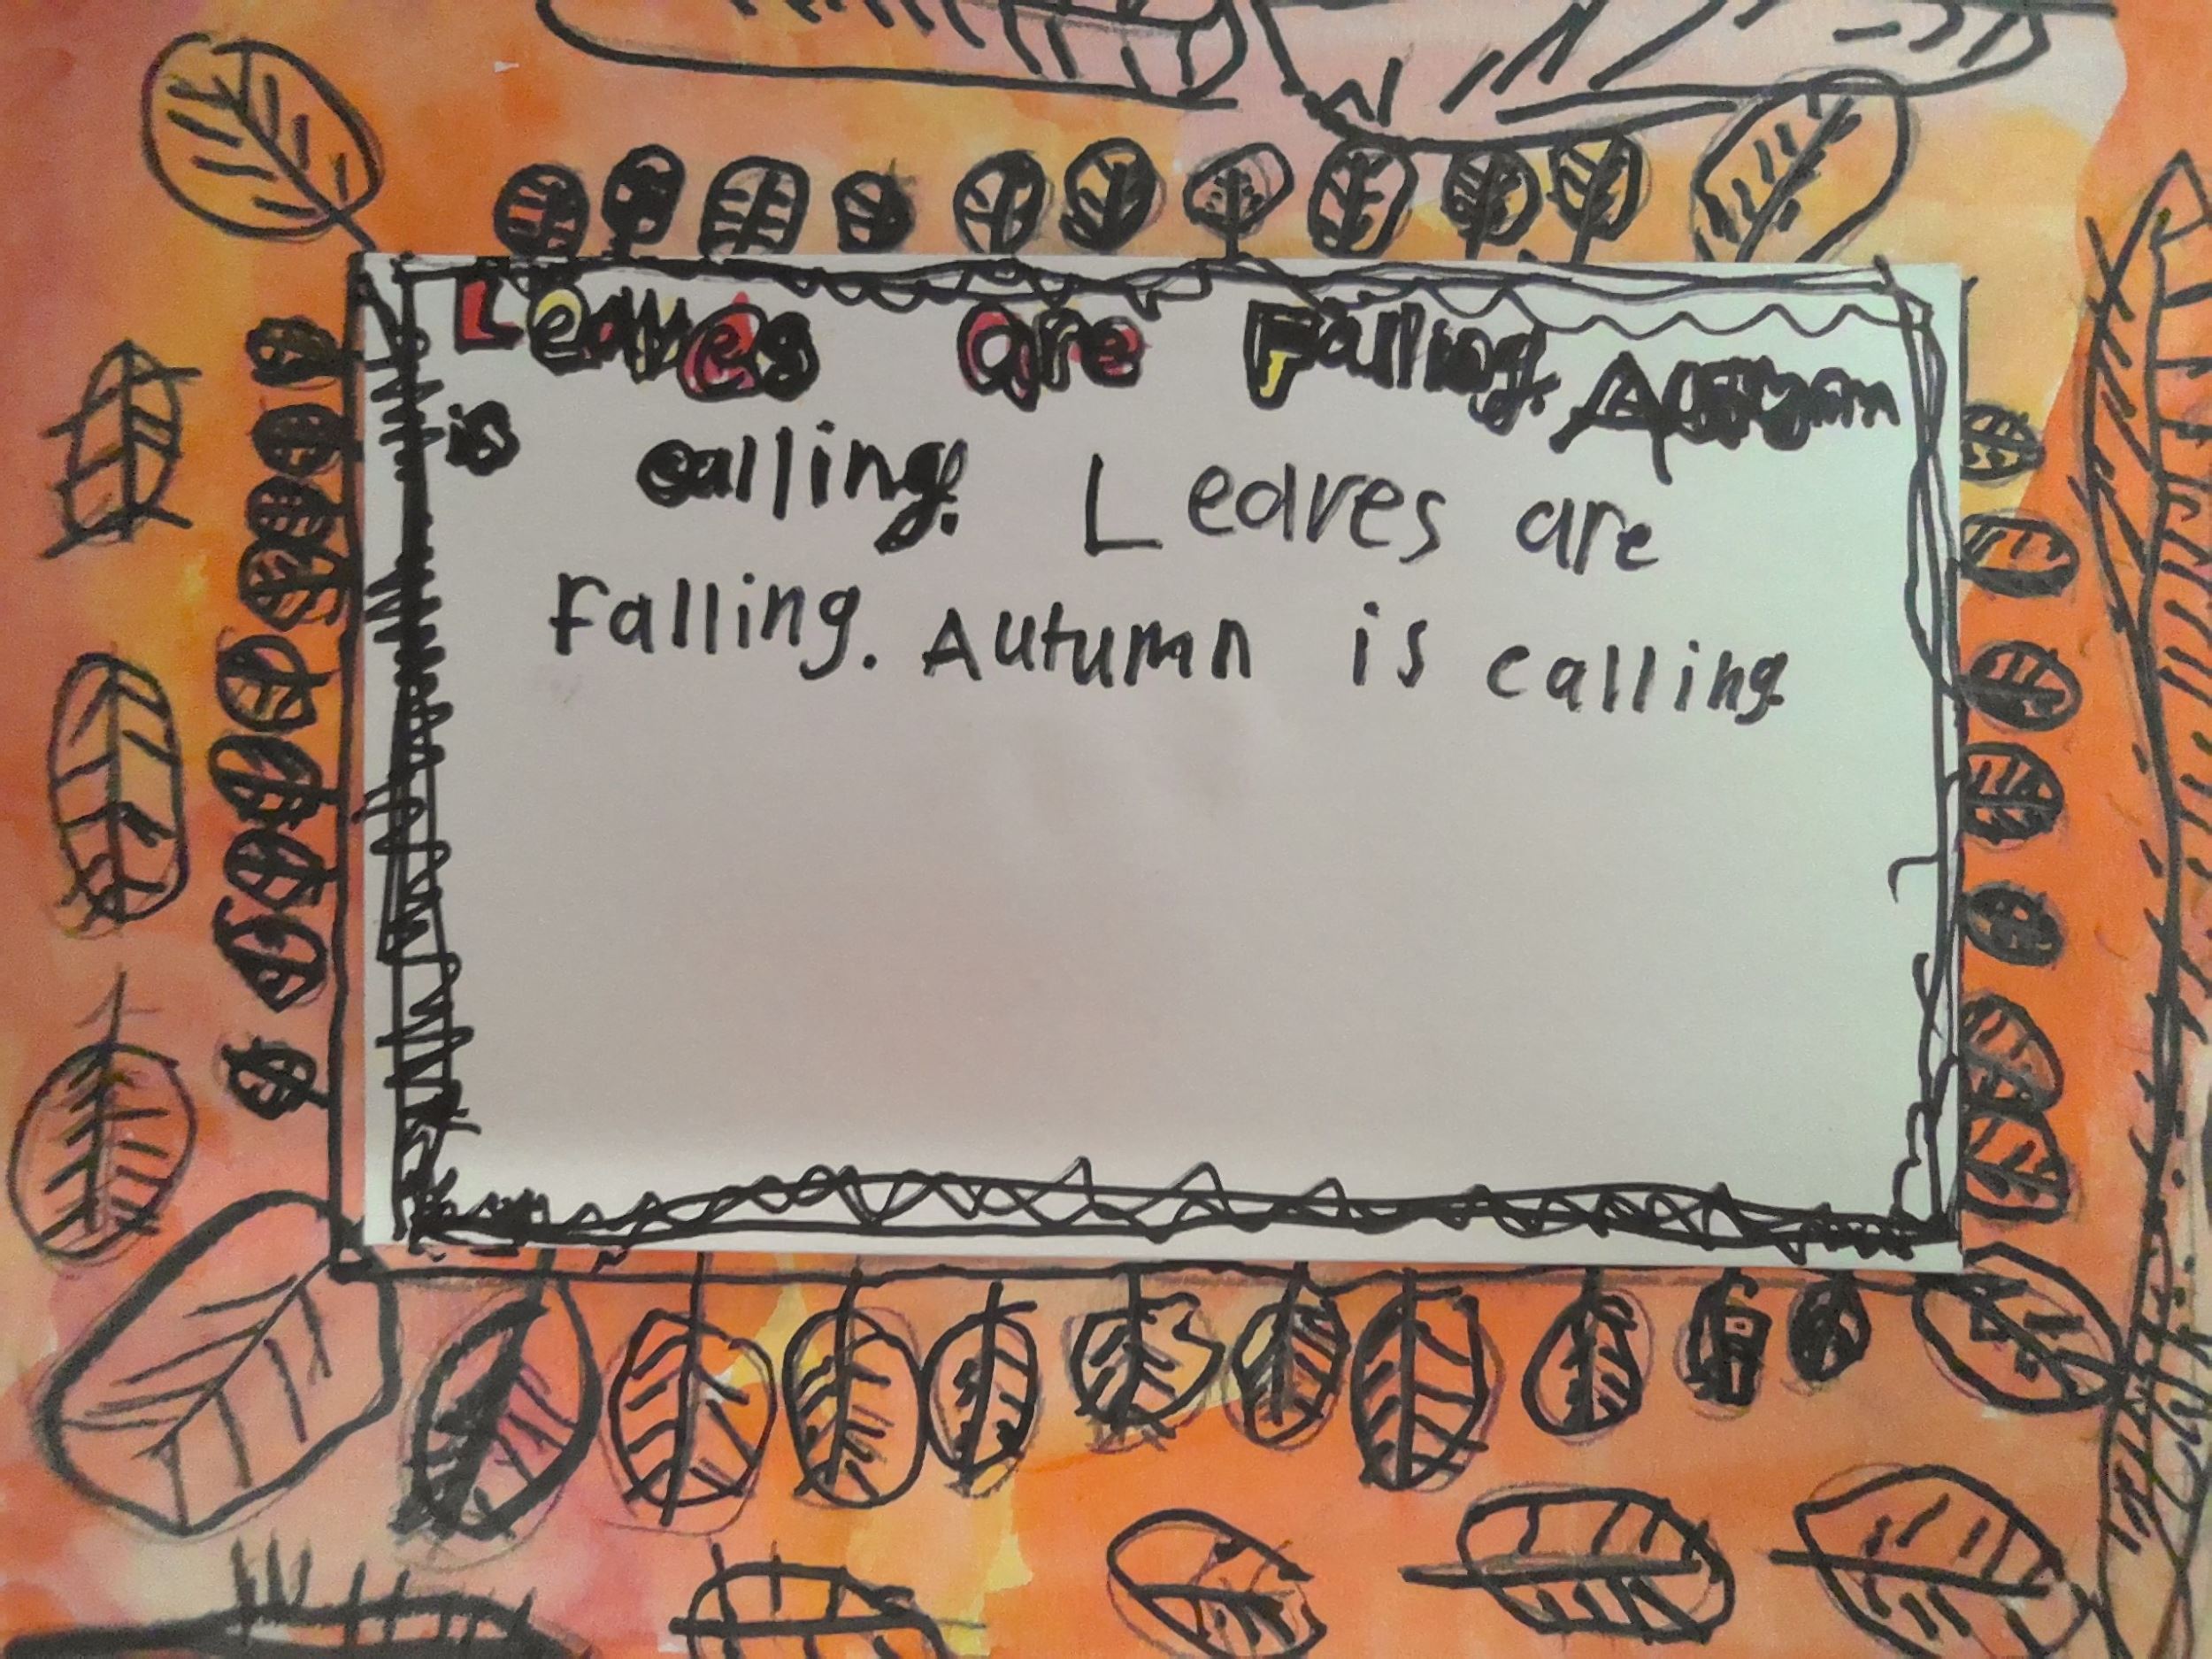 Leaves are Falling. Autumn
is calling. Leaves are
Falling. Autumn is calling.